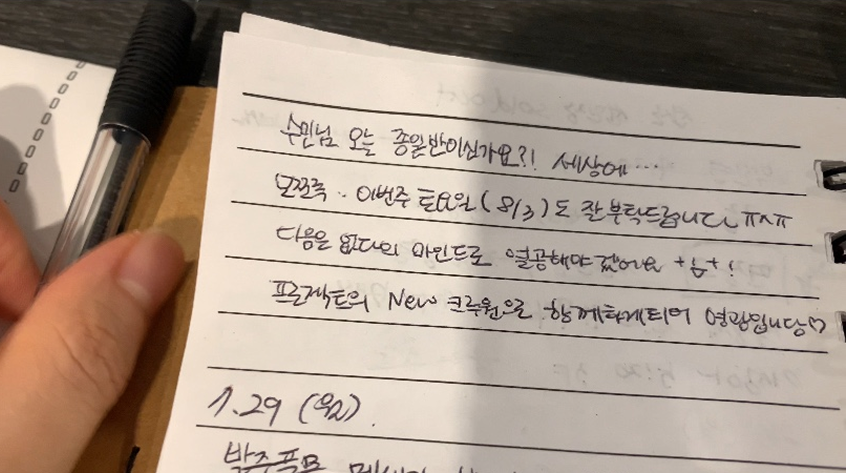 수민님 오늘 종일반이신가요?! 세상에...
이번주 토요일 (8/3)도 잘 부탁드립니다 ㅠㅅㅠ
다음은 없다의 마인드로 열공해야겠어요 +ㅅ+!
프로젝트의 New 크루원으로 함께하게되어 영광입니당♡
7.29 (월).